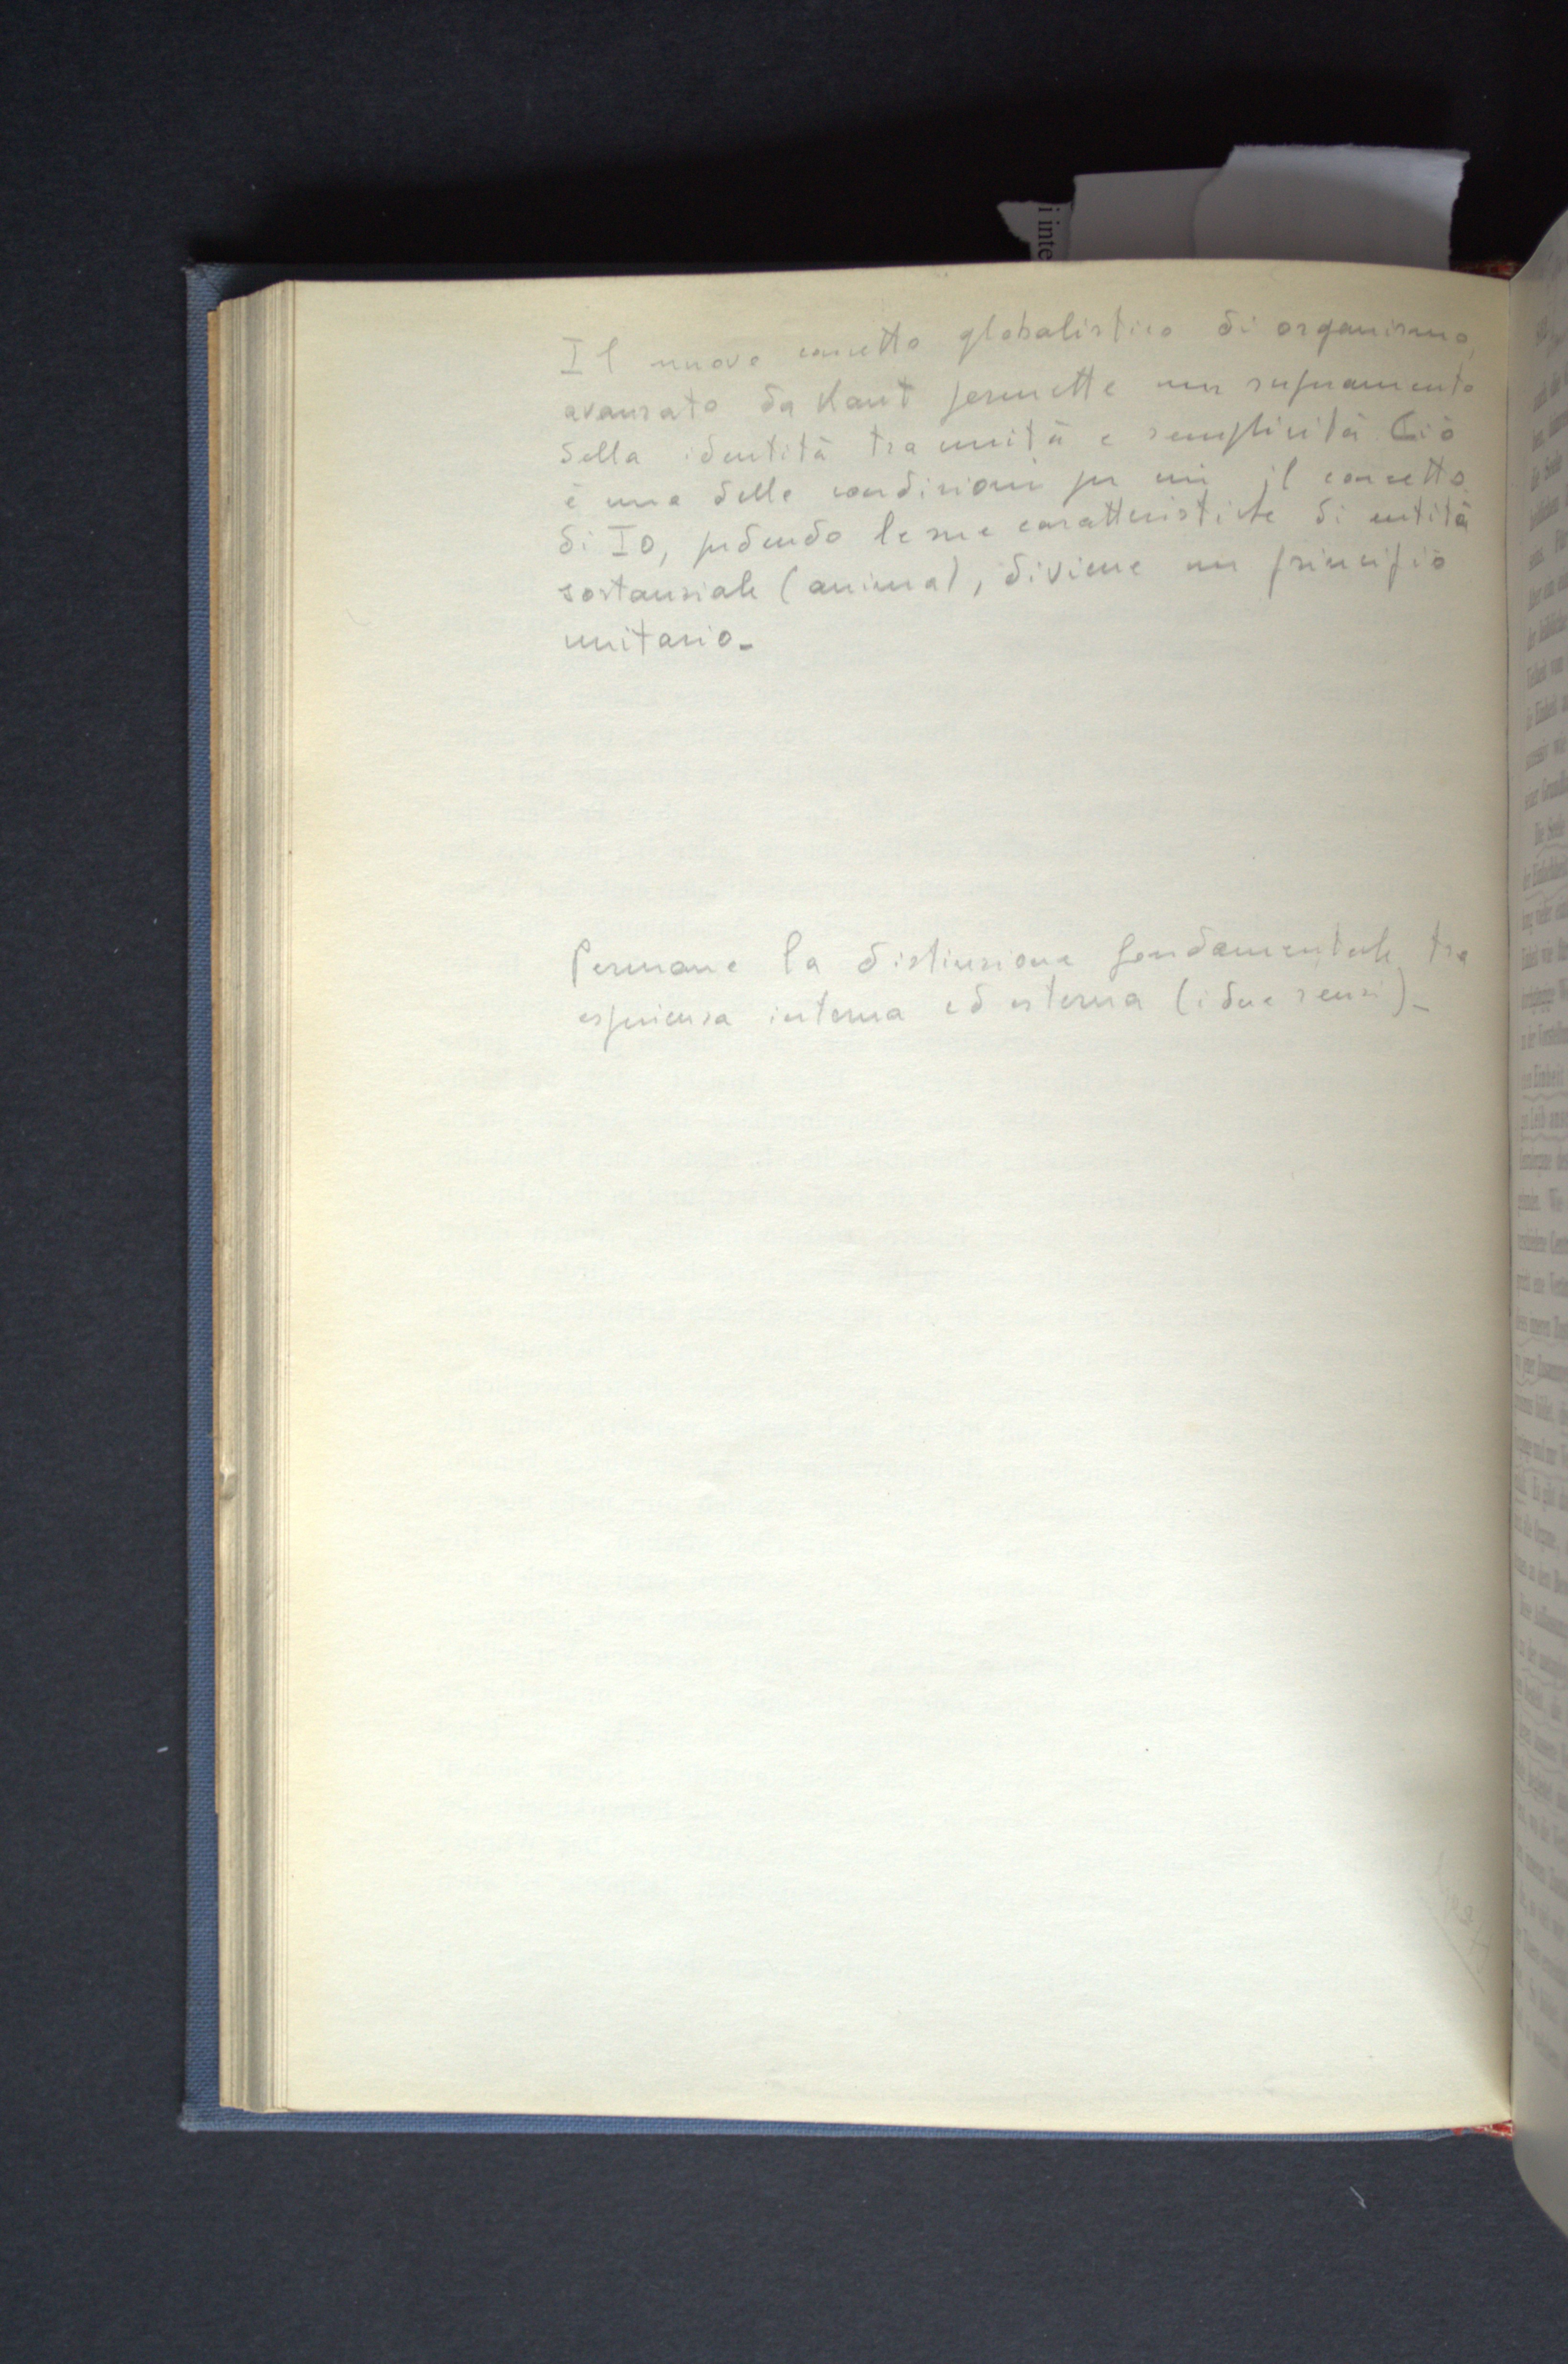 i inte
Il nuovo concetto globalistico di organismo,
avanzato da Kant permette un superamento
della identità tra unità e semplicità. Ciò
è una delle condizioni per cui il concetto
di Io, perdendo le sue caratteristiche di entità
sostanziale (anima), diviene un principio
unitario.
Permane la distinzione fondamentale tra
esperienza interna ed esterna (i due sensi).